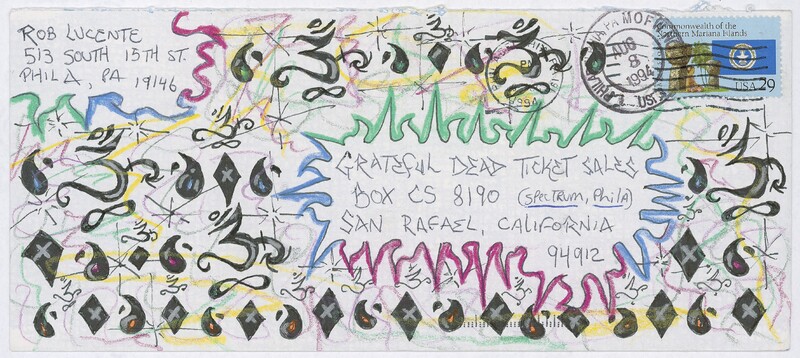 ROB LUCENTE
513 SOUTH 15TH ST.
PHILA, PA 19146
Commonwealth of the
Northern Mariana Islands
USA 29
AUG
8
1994
GRATEFUL DEAD TICKET SALES
BOX CS 8190 (SPECTRUM, PHILA)
SAN RAFAEL, CALIFORNIA
94912